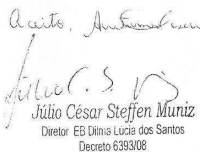 aceito,
Júlio C. S.
Júlio César Steffen Muniz
Diretor EB Dilma Lúcia dos Santos
Decreto 6393/08